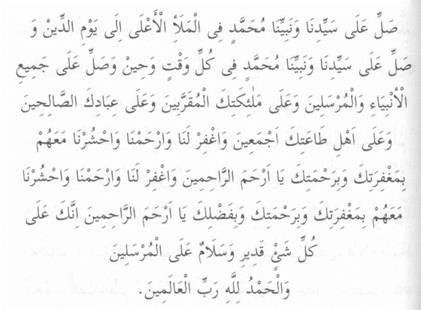 صَلِّ عَلَى سَيِّدِنَا وَنَبِيِّنَا مُحَمَّدٍ فِى الْمَلَأِ الْأَعْلَى اِلَى يَوْمِ الدِّينِ وَ
صَلِّ عَلَى سَيِّدِنَا وَنَبِيِّنَا مُحَمَّدٍ فِى كُلِّ وَقْتٍ وَحِيْنٍ وَصَلِّ عَلَى جَمِيعِ
الْأَنْبِيَاءِ وَالْمُرْسَلِينَ وَعَلَى مَلٰئِكَتِكَ الْمُقَرَّبِينَ وَعَلَى عِبَادِكَ الصَّالِحِينَ
وَعَلَى اَهْلِ طَاعَتِكَ اَجْمَعِينَ وَاغْفِرْ لَنَا وَارْحَمْنَا وَاحْشُرْنَا مَعَهُمْ
بِمَغْفِرَتِكَ وَبِرَحْمَتِكَ يَا اَرْحَمَ الرَّاحِمِينَ وَاغْفِرْ لَنَا وَارْحَمْنَا وَاحْشُرْنَا
مَعَهُمْ بِمَغْفِرَتِكَ وَبِرَحْمَتِكَ وَبِفَضْلِكَ يَا اَرْحَمَ الرَّاحِمِينَ اِنَّكَ عَلَى
كُلِّ شَئٍْ قَدِيرِ وَسَلَامٌ عَلَى الْمُرْسَلِينَ
وَالْحَمْدُ لِلّٰهِ رَبِّ الْعَالَمِينَ.